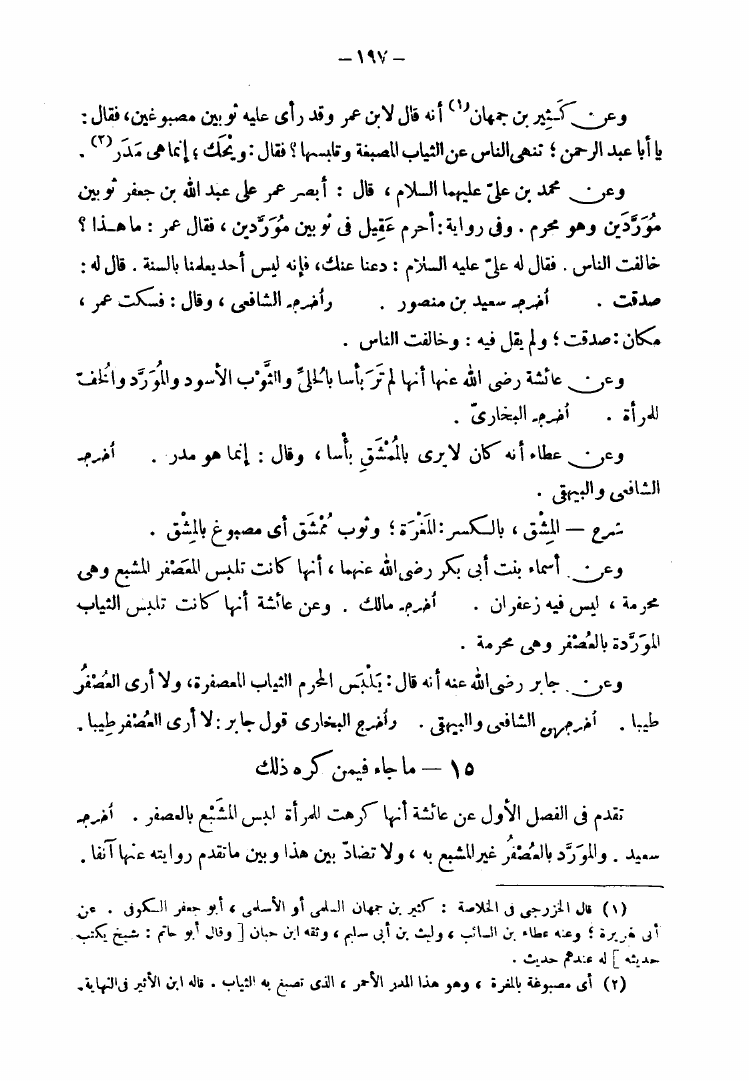 — ١٩٧ —
وعن كَثِير بن جمهان(١) أنه قال لابن عمر وقد رأى عليه ثوبين مصبوغين، فقال :
يا أبا عبد الرحمن ؛ تنهى الناس عن الثياب المصبغة وتلبسها ؟ فقال : ويْحَك ؛ إنما هى مَدَر(٢) .
وعن محمد بن علىّ عليهما السلام ، قال : أبصر عمر على عبد الله بن جعفر ثوبين
مُوَرَّدَين وهو محرم . وفى رواية : أحرم عَقِيل فى ثوبين مُوَرَّدين ، فقال عمر : ما هذا ؟
خالفت الناس . فقال له علىّ عليه السلام : دعنا عنك، فإنه ليس أحد يعلمنا بالسنة . قال له :
صدقت . أخرجه سعيد بن منصور . وأخرجه الشافعى ، وقال : فسكت عمر ،
مكان : صدقت ؛ ولم يقل فيه : وخالفت الناس .
وعن عائشة رضى الله عنها أنها لم تَرَ بأسا بالحلىّ والثَّوْب الأسود والمُوَرَّد والخفّ
للمرأة . أخرجه البخارىّ .
وعن عطاء أنه كان لا يرى بالمُمْشَقِ بأْسا ، وقال : إنما هو مدر . أخرجه
الشافعى والبيهقى .
شرح — المِشْق ، بالكسر : المَغْرَة ؛ وثوب مُمْشَق أى مصبوغ بالمِشْق .
وعن أسماء بنت أبى بكر رضى الله عنهما ، أنها كانت تلبس المعَصْفر المشبع وهى
محرمة ، ليس فيه زعفران . أخرجه مالك . وعن عائشة أنها كانت تلبس الثياب
المورَّدة بالعُصْفر وهى محرمة .
وعن جابر رضى الله عنه أنه قال : يَلْبَس المحرم الثياب المعصفرة، ولا أرى العُصْفُر
طيبا . أخرجهن الشافعى والبيهقى . وأخرج البخارى قول جابر : لا أرى العُصْفر طِيبا .
١٥ — ما جاء فيمن كره ذلك
تقدم فى الفصل الأول عن عائشة أنها كرهت للمرأة لبس المشَبْع بالعصفر . أخرجه
سعيد . والمورَّد بالعُصْفُر غير المشبع به ، ولا تضادّ بين هذا وبين ما تقدم روايته عنها آنفا .
(١) قال الخزرجى فى الخلاصة : كثير بن جمهان السلمى أو الأسلمى ، أبو جعفر الكوفى . عن
أبى هريرة ؛ وعنه عطاء بن السائب ، وليث بن أبى سليم ، وثقه ابن حبان [ وقال أبو حاتم : شيخ يكتب
حديثه ] له عندهم حديث .
(٢) أى مصبوغة بالمغرة ، وهو هذا المدر الأحمر ، الذى تصبغ به الثياب . قاله ابن الأثير فى النهاية .